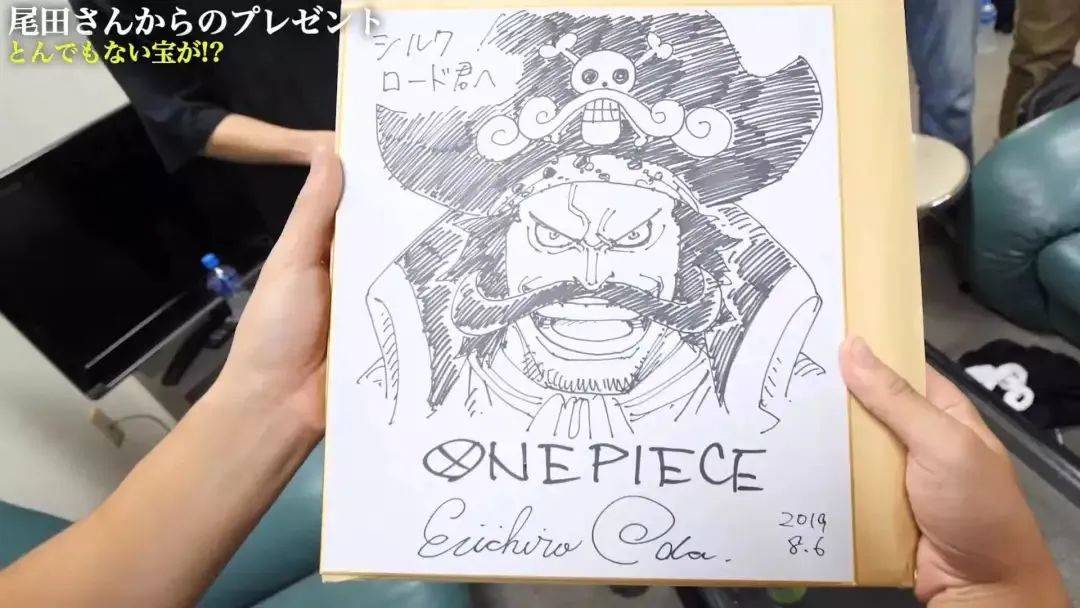 尾田さんからのプレゼント
とんでもない宝が!?
シルク
ロード君へ
ONE PIECE
Eiichiro Oda.
2019
8.6